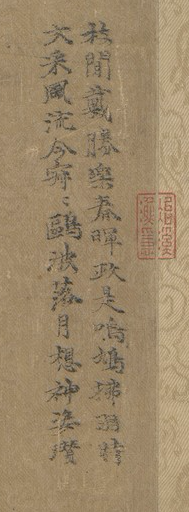 枝間戴勝樂春暉政是鳴鳩拂羽時
文采風流今寂寂鷗波落月想神姿瓚